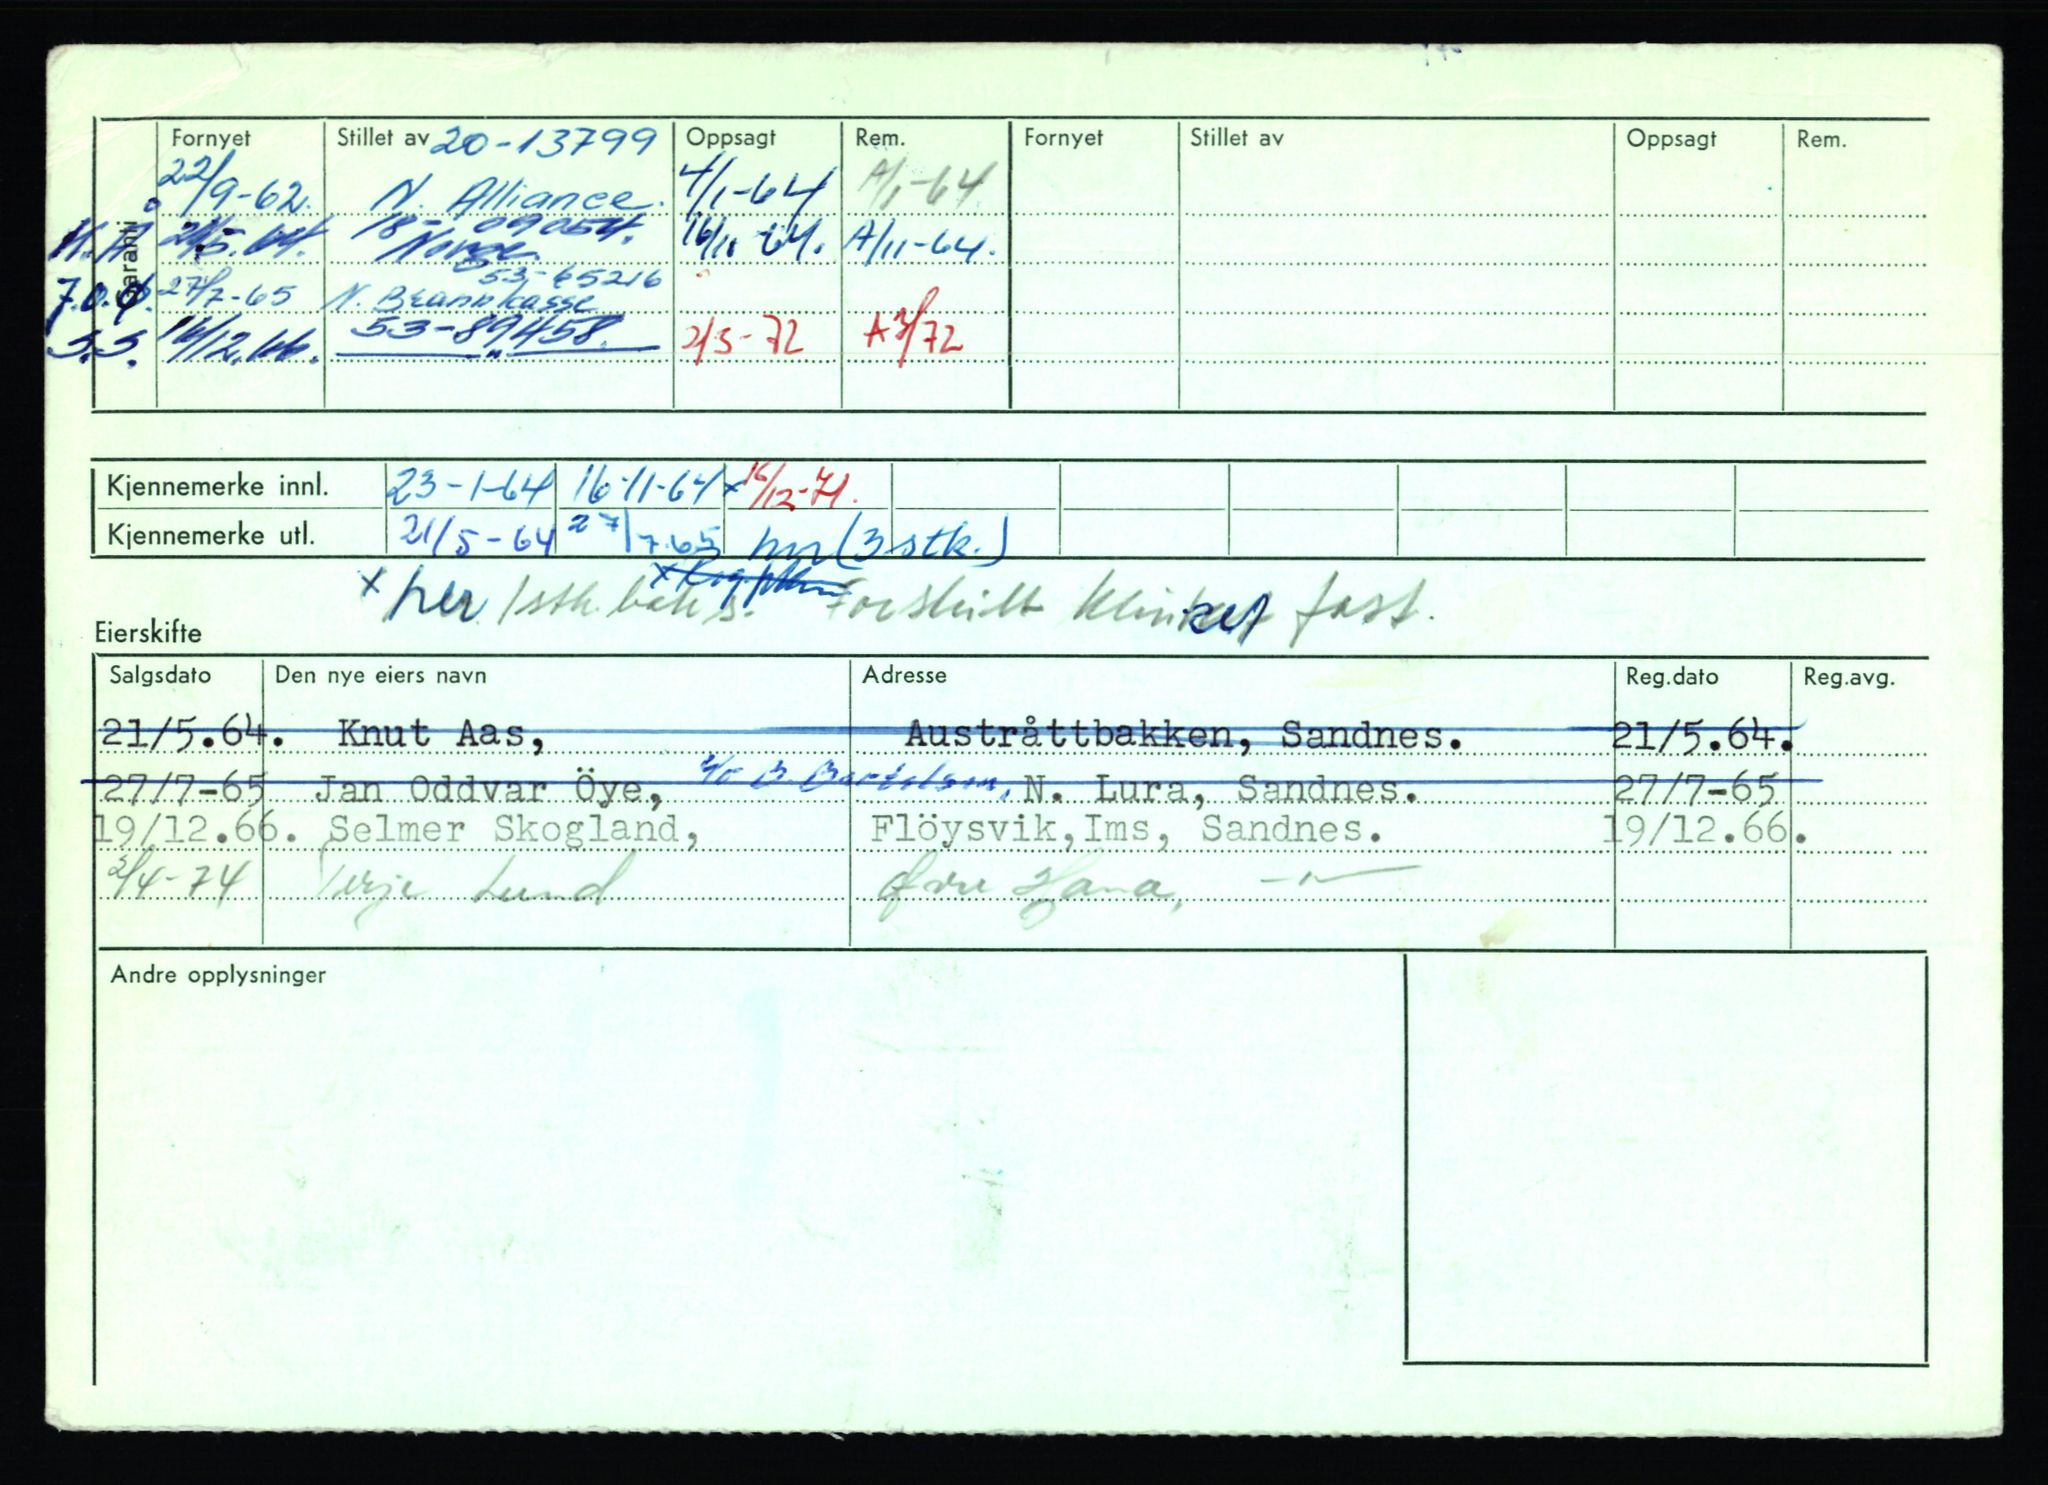 Garanti Fornyet Stillet av 20-13799 Oppsagt Rem. Fornyet Stillet av Oppsagt Rem.
22/9-62. N. Alliance. 4/1-64 A/1-64
21/5.64. 18-09054. Norge 16/11-64. A/11-64.
53-65216
7.0. 27/7-65 N. Brannkasse
S.S. 16/12.66. 53-89458. 2/3-72 A 3/72
Kjennemerke innl. 23-1-64 16-11-64 x 16/12-71.
Kjennemerke utl. 21/5-64 27/7.65 hn (3 stk.)
x her 1 stk. bak s. Forskilt klinket fast.
Eierskifte
Salgsdato Den nye eiers navn Adresse Reg.dato Reg.avg.
21/5.64. Knut Aas, Austråttbakken, Sandnes. 21/5.64.
27/7-65 Jan Oddvar Öye, c/o B. Bertelsen, N. Lura, Sandnes. 27/7-65
19/12.66. Selmer Skogland, Flöysvik, Ims, Sandnes. 19/12.66.
2/4-74 Terje Lund Øvre Hana, -"-
Andre opplysninger